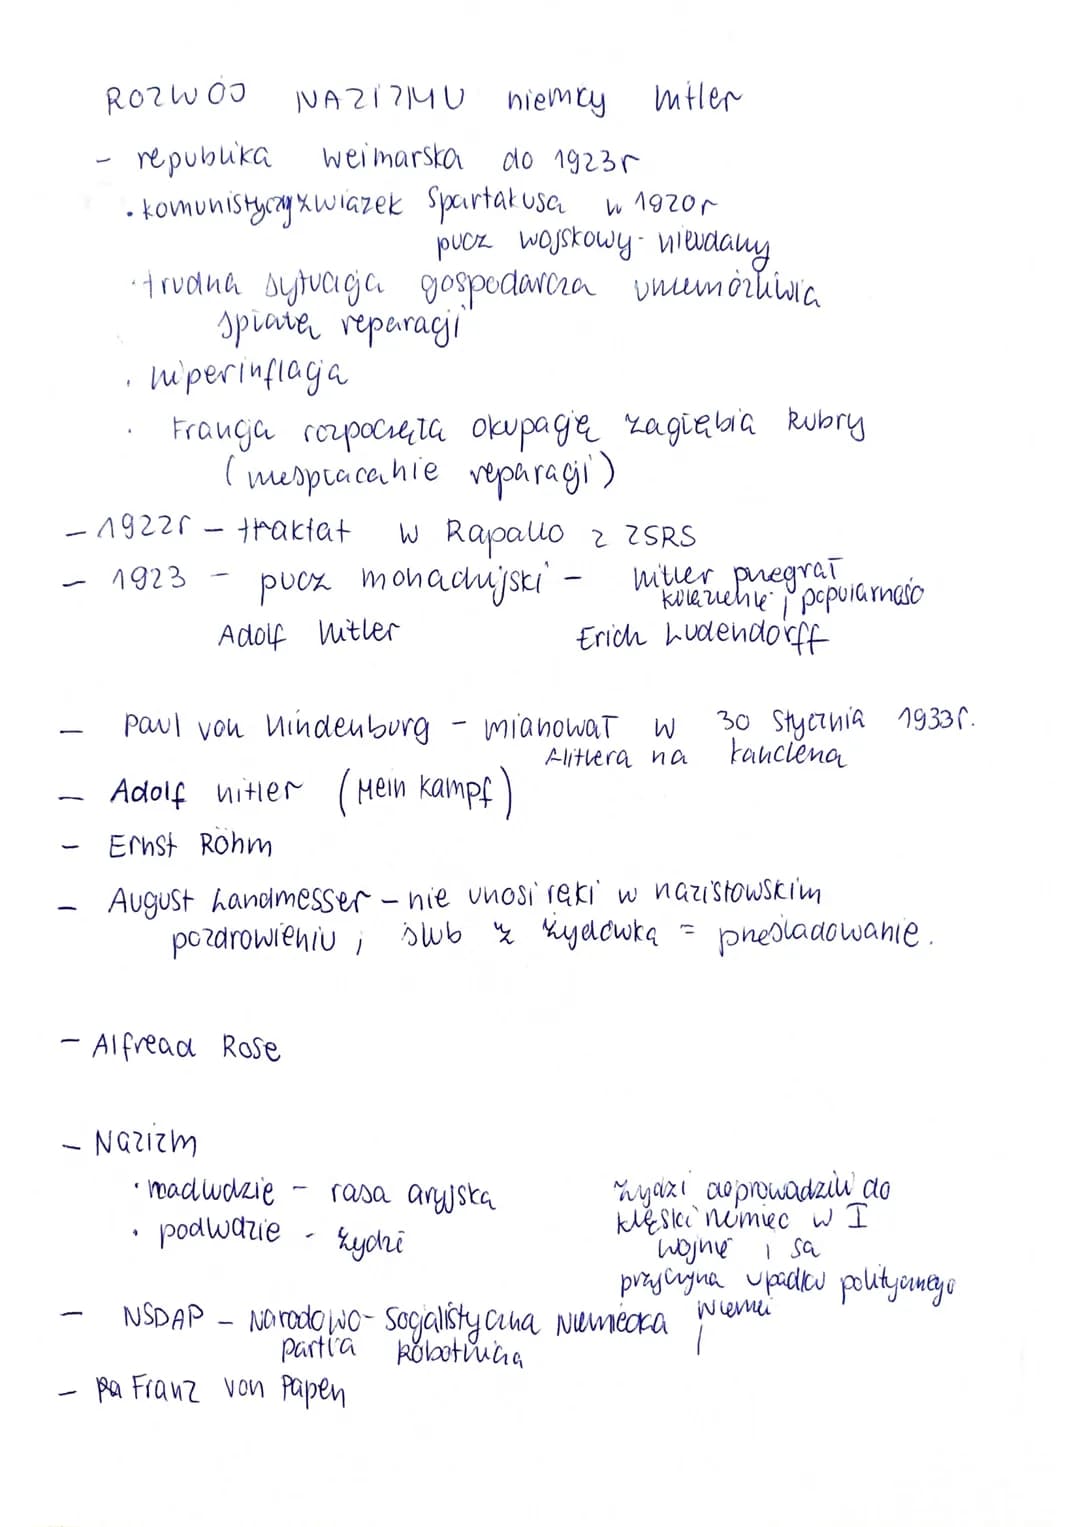 ROZWÓJ NAZIZMU niemcy hitler
- republika weimarska do 1923r
• komunistyczny związek Spartakusa w 1920r
pucz wojskowy - nieudany
• trudna sytuacja gospodarcza uniemożliwia
spłatę reparacji
• hiperinflacja
• Francja rozpoczęła okupację zagłębia Ruhry
(niespłacanie reparacji)
- 1922r - traktat w Rapallo z ZSRS
- 1923 - pucz monachijski - hitler przegrał
więzienie i popularność
Adolf hitler Erich Ludendorff
- Paul von hindenburg - mianował w 30 stycznia 1933r.
Hitlera na kanclerza
- Adolf hitler (Mein kampf)
- Ernst Röhm
- August Landmesser - nie unosi ręki w nazistowskim
pozdrowieniu, ślub z żydówką = prześladowanie.
- Alfread Rose
- Nazizm
• nadludzie - rasa aryjska
• podludzie - żydzi
żydzi doprowadzili do
klęski niemiec w I
wojnie i są
przyczyną upadku politycznego
niemiec
- NSDAP - Narodowo-Socjalistyczna Niemiecka
partia Robotnicza
- Franz von Papen